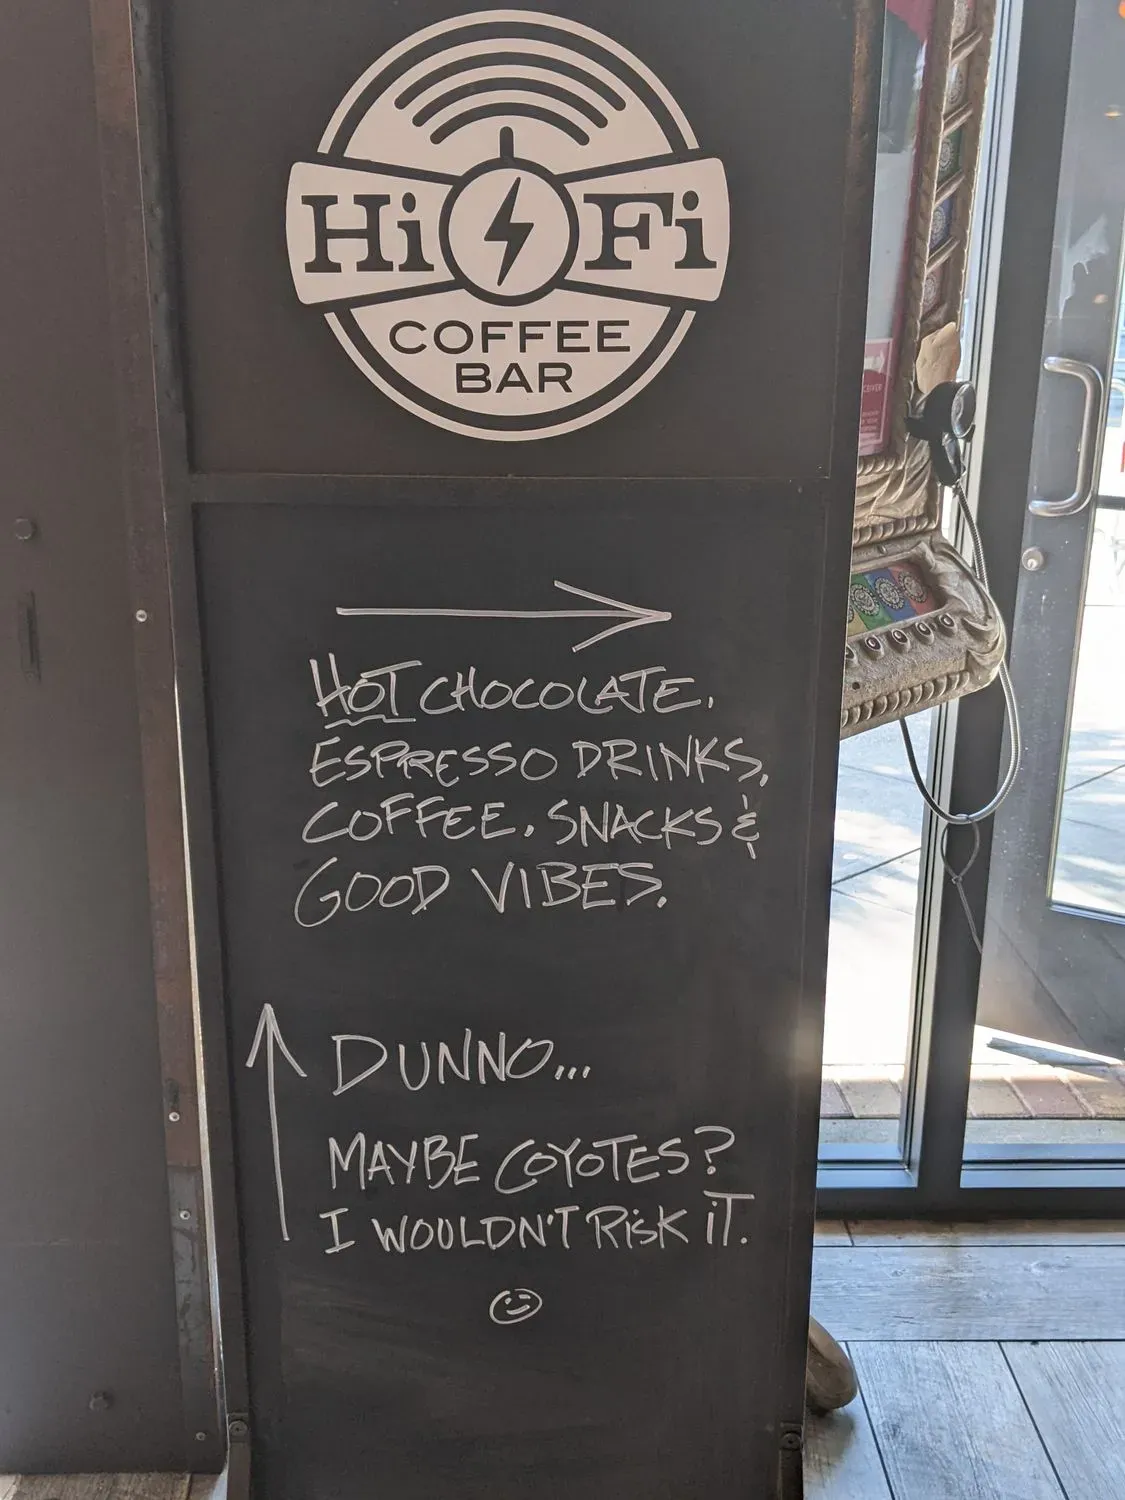 Hi Fi
COFFEE
BAR
HOT CHOCOLATE.
ESPRESSO DRINKS,
COFFEE. SNACKS &
GOOD VIBES.
DUNNO...
MAYBE COYOTES?
I WOULDN'T RISK IT.